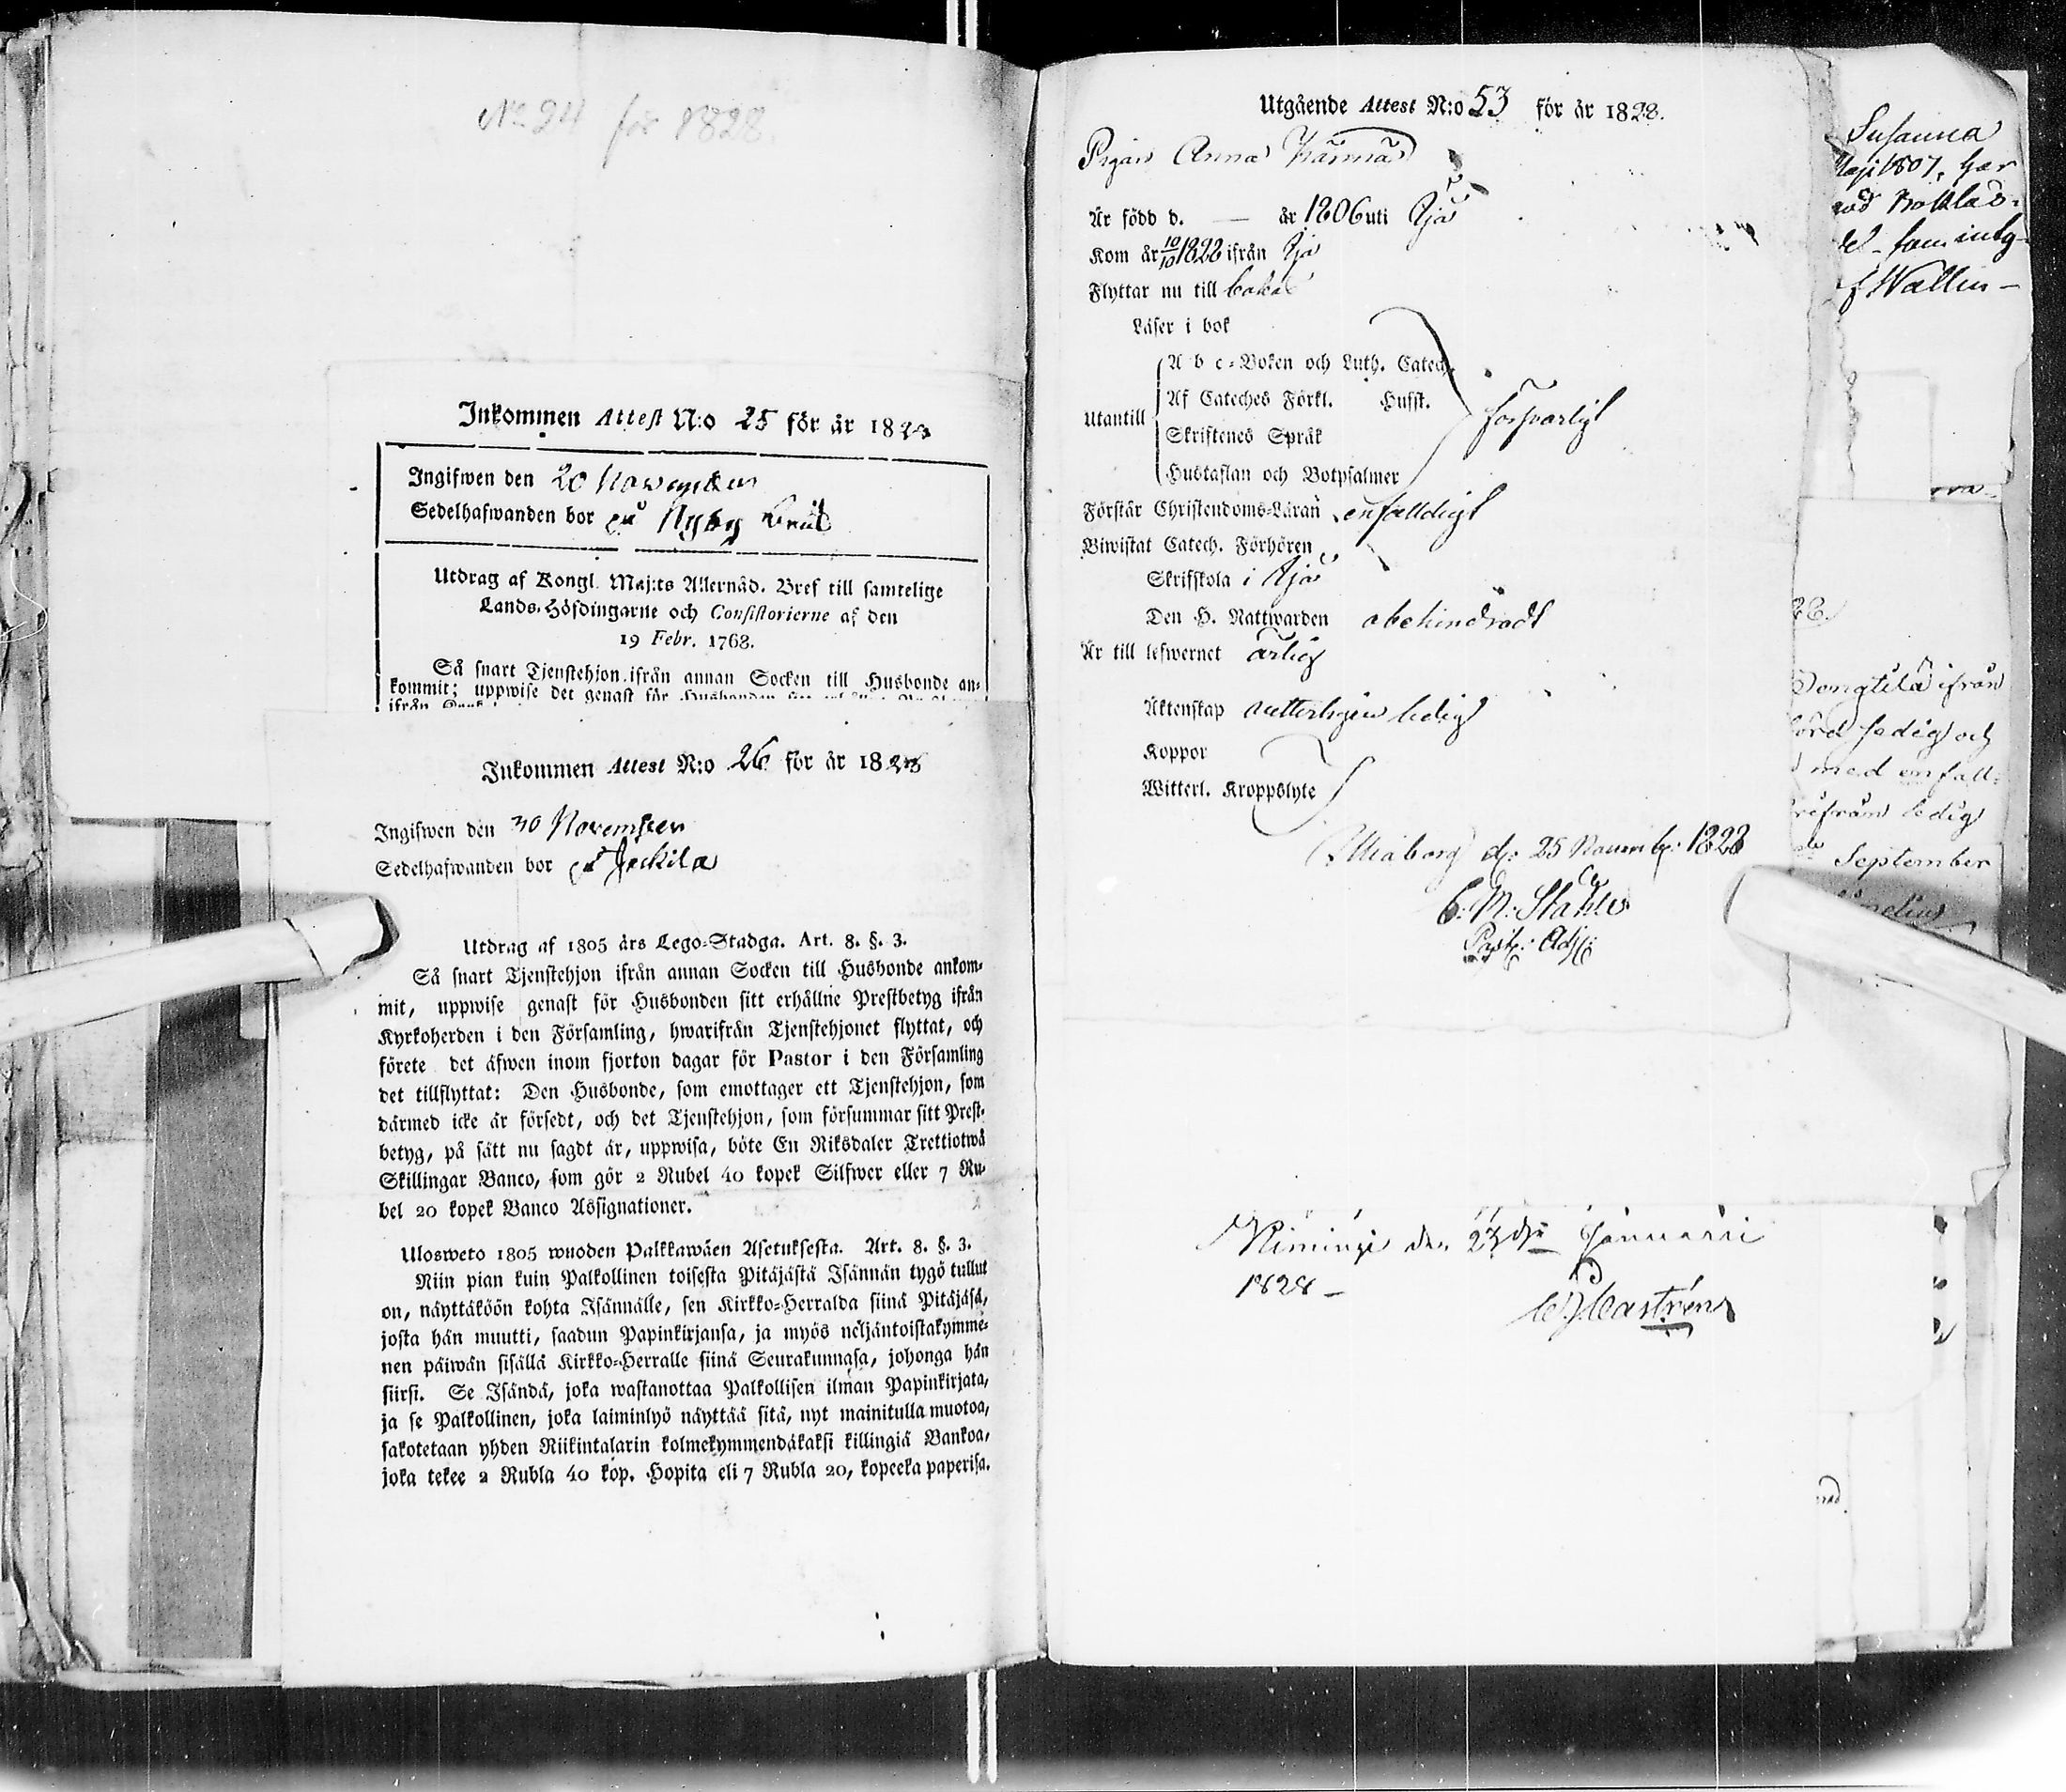 No 24 för 1828.
Inkommen Attest N:o 25 för år 1828
Ingifwen den 20 November
Sedelhafwanden bor på Nyby
Utdrag af Kongl. Maj:ts Allernåd. Bref till samtelige
Lands-Höfdingarne och Consistorierne af den
19 Febr. 1768.
Så snart Tjenstehjon ifrån annan Socken till Husbonde an-
kommit; uppwise det genast för Husbonden sitt
ifrån
Inkommen Attest N:o 26 för år 1828
Ingifwen den 30 November
Sedelhafwanden bor på Jockila
Utdrag af 1805 års Lego-Stadga. Art. 8. §. 3.
Så snart Tjenstehjon ifrån annan Socken till Husbonde ankom-
mit, uppwise genast för Husbonden sitt erhållne Prestbetyg ifrån
Kyrkoherden i den Församling, hwarifrån Tjenstehjonet flyttat, och
förete det äfwen inom fjorton dagar för Pastor i den Församling
det tillflyttat: Den Husbonde, som emottager ett Tjenstehjon, som
därmed icke är försedt, och det Tjenstehjon, som försummar sitt Prest-
betyg, på sätt nu sagdt är, uppwisa, böte En Riksdaler Trettiotwå
Skillingar Banco, som gör 2 Rubel 40 kopek Silfwer eller 7 Ru-
bel 20 kopek Banco Assignationer.
Ulosweto 1805 wuoden Palkkawäen Asetuksesta. Art. 8. §. 3.
Niin pian kuin Palkollinen toisesta Pitäjästä Isännän tygö tullut
on, näyttäköön kohta Isännälle, sen Kirkko-Herralda siinä Pitäjäsä,
josta hän muutti, saadun Papinkirjansa, ja myös neljäntoistakymme-
nen päiwän sisällä Kirkko-Herralle siinä Seurakunnasa, johonga hän
siirsi. Se Isändä, joka wastanottaa Palkollisen ilman Papinkirjata,
ja se Palkollinen, joka laiminlyö näyttää sitä, nyt mainitulla muotoa,
sakotetaan yhden Riikintalarin kolmekymmendäkaksi killingiä Bankoa,
joka tekee 2 Rubla 40 kop. Hopita eli 7 Rubla 20, kopeeka paperisa.
Utgående Attest N:o 53 för år 1828.
Pigan Anna
Är född d. — år 1806 uti Ijo
Kom år 10/10 1828 ifrån Ijo
Flyttar nu till baka
Läser i bok
A b c-Boken och Luth. Catech.
Af Cateches Förkl. Husst.
Utantill försvarligt
Skriftenes Språk
Hustaflan och Botpsalmer
Förstår Christendoms-Läran enfalldigt
Biwistat Catech. Förhören
Skrifskola i Ijo
Den H. Nattwarden obehindradt
Är till lefwernet ärlig
Äktenskap vetterligen ledig
Koppor
Witterl. Kroppslyte
Uleåborg d: 25 Novemb: 1828
C. M. Ståhle
Past: Adj:
Kiminge den 23 dje Januarii
1828 –
Castrén
Susanna
Maji 1807, har
Wallin –
ifrån
ledig och
med enfall-
ledig
September